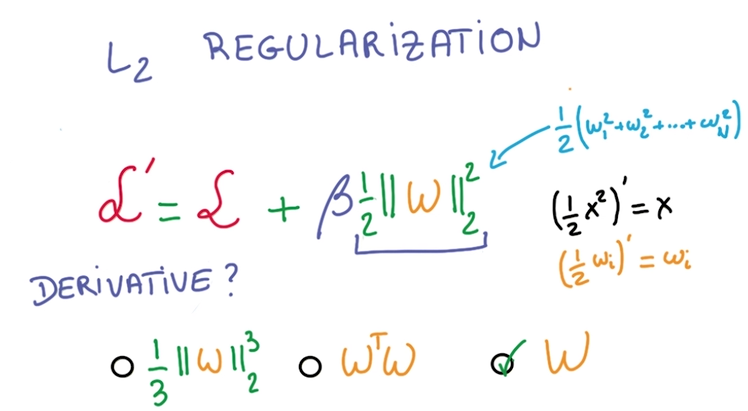 L₂ REGULARIZATION
½(ω₁²+ω₂²+...+ω_N²)
ℒ′ = ℒ + β ½‖ω‖₂²
(½x²)′ = x
(½ωᵢ)′ = ωᵢ
DERIVATIVE?
⅓‖ω‖₂³ ωᵀω ω